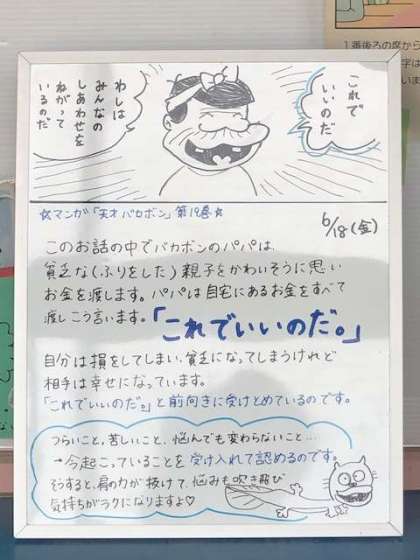 1番後ろの席から
字は
いま
これで
いいのだ
わしは
みんなの
しあわせを
ねがって
いるのだ
☆マンガ「天才バカボン」第19巻☆
6/18(金)
このお話の中でバカボンのパパは、
貧乏な(ふりをした)親子をかわいそうに思い
お金を渡します。パパは自宅にあるお金をすべて
渡しこう言います。「これでいいのだ。」
自分は損をしてしまい、貧乏になってしまうけれど
相手は幸せになっています。
「これでいいのだ。」と前向きに受けとめているのです。
つらいこと、苦しいこと、悩んでも変わらないこと…
→今起こっていることを受け入れて認めるのです。
そうすると、肩の力が抜けて、悩みも吹き飛び
気持ちがラクになりますよ♡